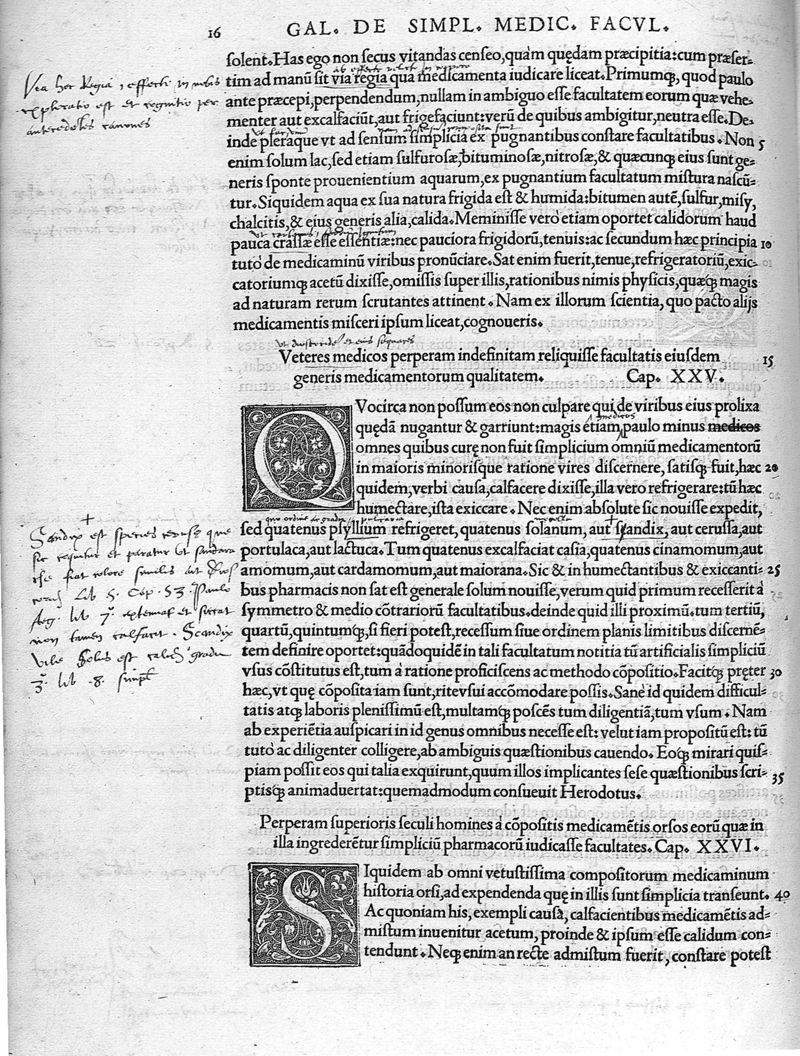 16 GAL. DE SIMPL. MEDIC. FACVL.
solent. Has ego non secus vitandas censeo, quàm quędam præcipitia: cum præser-
tim ad manū sit via regia qua medicamenta iudicare liceat. Primumq́;, quod paulo
ante præcepi, perpendendum, nullam in ambiguo esse facultatem eorum quæ vehe-
menter aut excalfaciūt, aut frigefaciunt: verū de quibus ambigitur, neutra esse. De-
inde pleraque vt ad sensum simplicia ex pugnantibus constare facultatibus. Non 5
enim solum lac, sed etiam sulfurosæ, bituminosæ, nitrosæ, & quæcunq; eius sunt ge-
neris sponte prouenientium aquarum, ex pugnantium facultatum mistura nascū-
tur. Siquidem aqua ex sua natura frigida est & humida: bitumen autē, sulfur, misy,
chalcitis, & eius generis alia, calida. Meminisse vero etiam oportet calidorum haud
pauca crassæ esse essentiæ: nec pauciora frigidorū, tenuis: ac secundum hæc principia 10
tutò de medicaminū viribus pronūciare. Sat enim fuerit, tenue, refrigeratoriū, exic-
catoriumq; acetū dixisse, omissis super illis, rationibus nimis physicis, quæq́; magis
ad naturam rerum scrutantes attinent. Nam ex illorum scientia, quo pacto alijs
medicamentis misceri ipsum liceat, cognoueris.
Veteres medicos perperam indefinitam reliquisse facultatis eiusdem 15
generis medicamentorum qualitatem. Cap. XXV.
QVocirca non possum eos non culpare qui de viribus eius prolixa
quędā nugantur & garriunt: magis etiam medicos paulo minus medicos
omnes quibus curę non fuit simplicium omniū medicamentorū
in maioris minorisque ratione vires discernere, satisq; fuit, hæc 20
quidem, verbi causa, calfacere dixisse, illa vero refrigerare: tū hæc
humectare, ista exiccare. Nec enim absolute sic nouisse expedit,
sed quatenus psyllium refrigeret, quatenus solanum, aut scandix, aut cerussa, aut
portulaca, aut lactuca. Tum quatenus excalfaciat casia, quatenus cinamomum, aut
amomum, aut cardamomum, aut maiorana. Sic & in humectantibus & exiccanti- 25
bus pharmacis non sat est generale solum nouisse, verum quid primum recesserit à
symmetro & medio cōtrariorū facultatibus. deinde quid illi proximū. tum tertiū,
quartū, quintumq́;, si fieri potest, recessum siue ordinem planis limitibus discernē-
tem definire oportet: quādoquidē in tali facultatum notitia tū artificialis simpliciū
vsus cōstitutus est, tum à ratione proficiscens ac methodo cōpositio. Facitq́; pręter 30
hæc, vt quę cōposita iam sunt, rite vsui accōmodare possis. Sanè id quidem difficul-
tatis atq; laboris plenissimū est, multamq; poscēs tum diligentiā, tum vsum. Nam
ab experiētia auspicari in id genus omnibus necesse est: velut iam propositū est: tū
tutò ac diligenter colligere, ab ambiguis quæstionibus cauendo. Eoq; mirari quis-
piam possit eos qui talia exquirunt, quum illos implicantes sese quæstionibus scri- 35
ptisq; animaduertat: quemadmodum consueuit Herodotus.
Perperam superioris seculi homines à cōpositis medicamētis orsos eorū quæ in
illa ingrederētur simpliciū pharmacorū iudicasse facultates. Cap. XXVI.
SIquidem ab omni vetustissima compositorum medicaminum
historia orsi, ad expendenda quę in illis sunt simplicia transeunt. 40
Ac quoniam his, exempli causa, calfacientibus medicamētis ad-
mistum inuenitur acetum, proinde & ipsum esse calidum con-
tendunt. Neq; enim an recte admistum fuerit, constare potest
Via hec Regia
explicatio est et cognitio per
antecedētes canones
Scandix est species